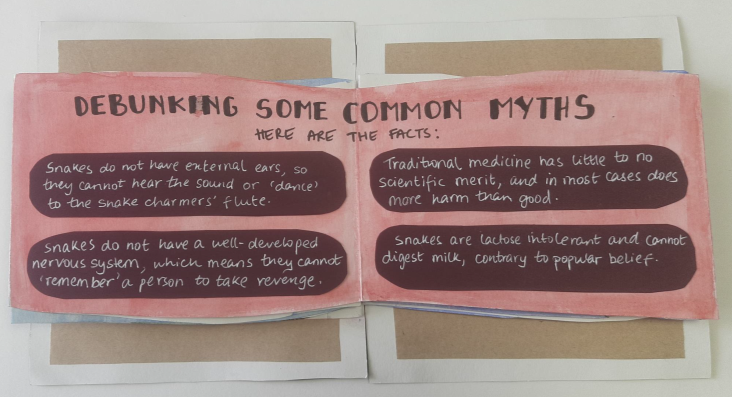 DEBUNKING SOME COMMON MYTHS
HERE ARE THE FACTS:
Snakes do not have external ears, so
they cannot hear the sound or 'dance'
to the snake charmers' flute.
Snakes do not have a well-developed
nervous system, which means they cannot
'remember' a person to take revenge.
Traditional medicine has little to no
scientific merit, and in most cases does
more harm than good.
Snakes are lactose intolerant and cannot
digest milk, contrary to popular belief.